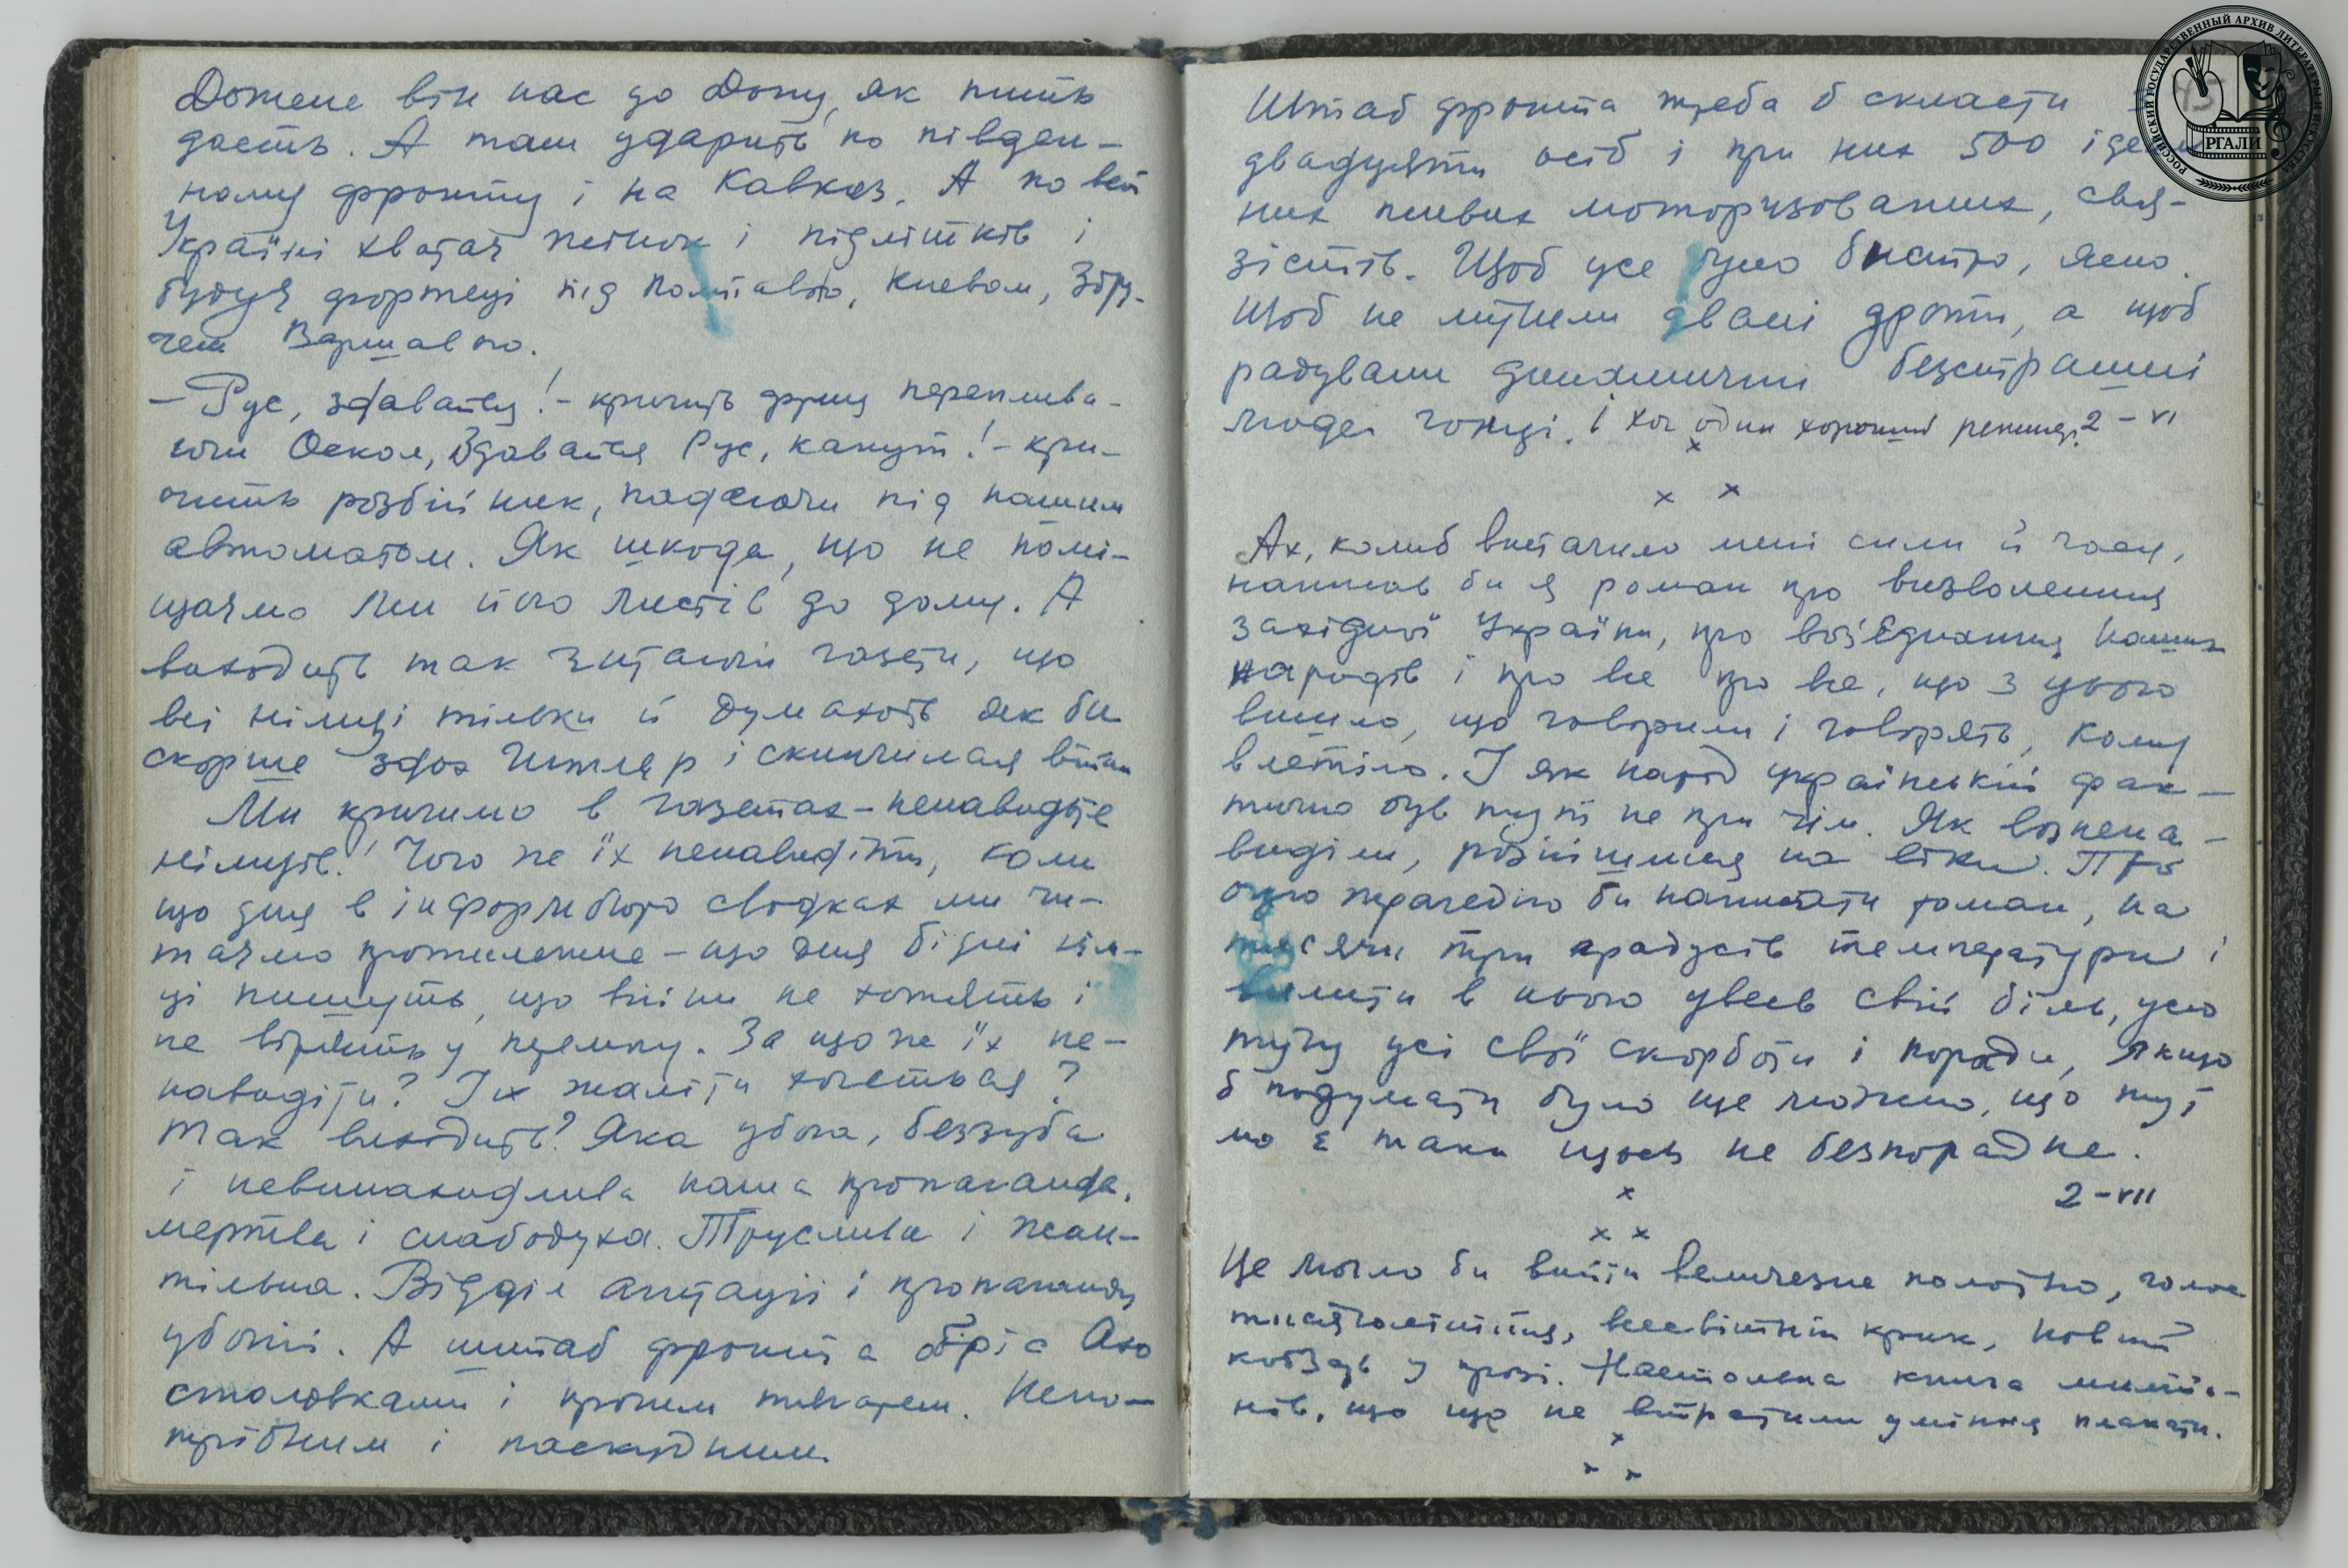 Дожене він нас до Дону, як пить
дасть. А там ударить по півден-
ному фронту і на Кавказ. А по всій
Україні хватає жінок і підлітків і
будує фортеці під Полтавою, Києвом, Збру-
чем Варшавою.
— Рус, здавайся! — кричить фриц переплива-
ючи Оскол, Здавайся Рус, капут! — кри-
чить розбійник, падаючи під нашим
автоматом. Як шкода, що не помі-
щаємо ми його листів до дому. А
виходить так читаючи газети, що
всі німці тільки й думають як би
скорше здох Гитлер і скінчилася війна
Ми кричимо в газетах — ненавидьте
німців! Чого ж їх ненавидіти, коли
що дня в інформбюро сводках ми чи-
таємо протилежне — що дня бідні нім-
ці пишуть, що війни не хотять і
не вірять у перемогу. За що ж їх не-
навидіти? Їх жаліти хочеться?
Так виходить? Яка убога, беззуба
і невинахидлива наша пропаганда,
мертва і слабодуха. Труслива і жан-
тільна. Відділ агітації і пропаганди
убогий. А штаб фронта обріс Ахо
столовками і прочим тилатем. Непо-
трібним і паскудним.
Штаб фронта треба б скласти
двадцяти осіб і при них 500
них живих моторизованих, свя-
зістів. Щоб усе було бистро, ясно.
Щоб не мутили дроти, а щоб
радували динамичні безстрашні
люде гонці. І хоч один хороший 2 – VI
х
х х
Ах, колиб вистачило мені сили й часу,
написав би я роман про визволення
західної України, про воз'єднання наших
народів і про все про все, що з цього
вийшло, що говорили і говорять, кому
влетіло. І як народ український фак-
тично був тут не при чім. Як вознена-
виділи, розійшлися на віки. Про
оцю трагедію би написати роман, на
тисячи три градусів температури і
вилити в нього увесь свій біль, усю
тугу усі свої скорботи і поради, якщо
б подумати було ще можно, що тут
мо є таки щось не безпорадне.
2 – VII
х
х х
Це могло би вийти величезне полотно, голос
тисячоліття, всесвітній крик, новий
кобзарь у прозі. Настольна книга
нів, що ще не втратили уміння плакати.
х
х х
РОССИЙСКИЙ ГОСУДАРСТВЕННЫЙ АРХИВ ЛИТЕРАТУРЫ И ИСКУССТВА
РГАЛИ